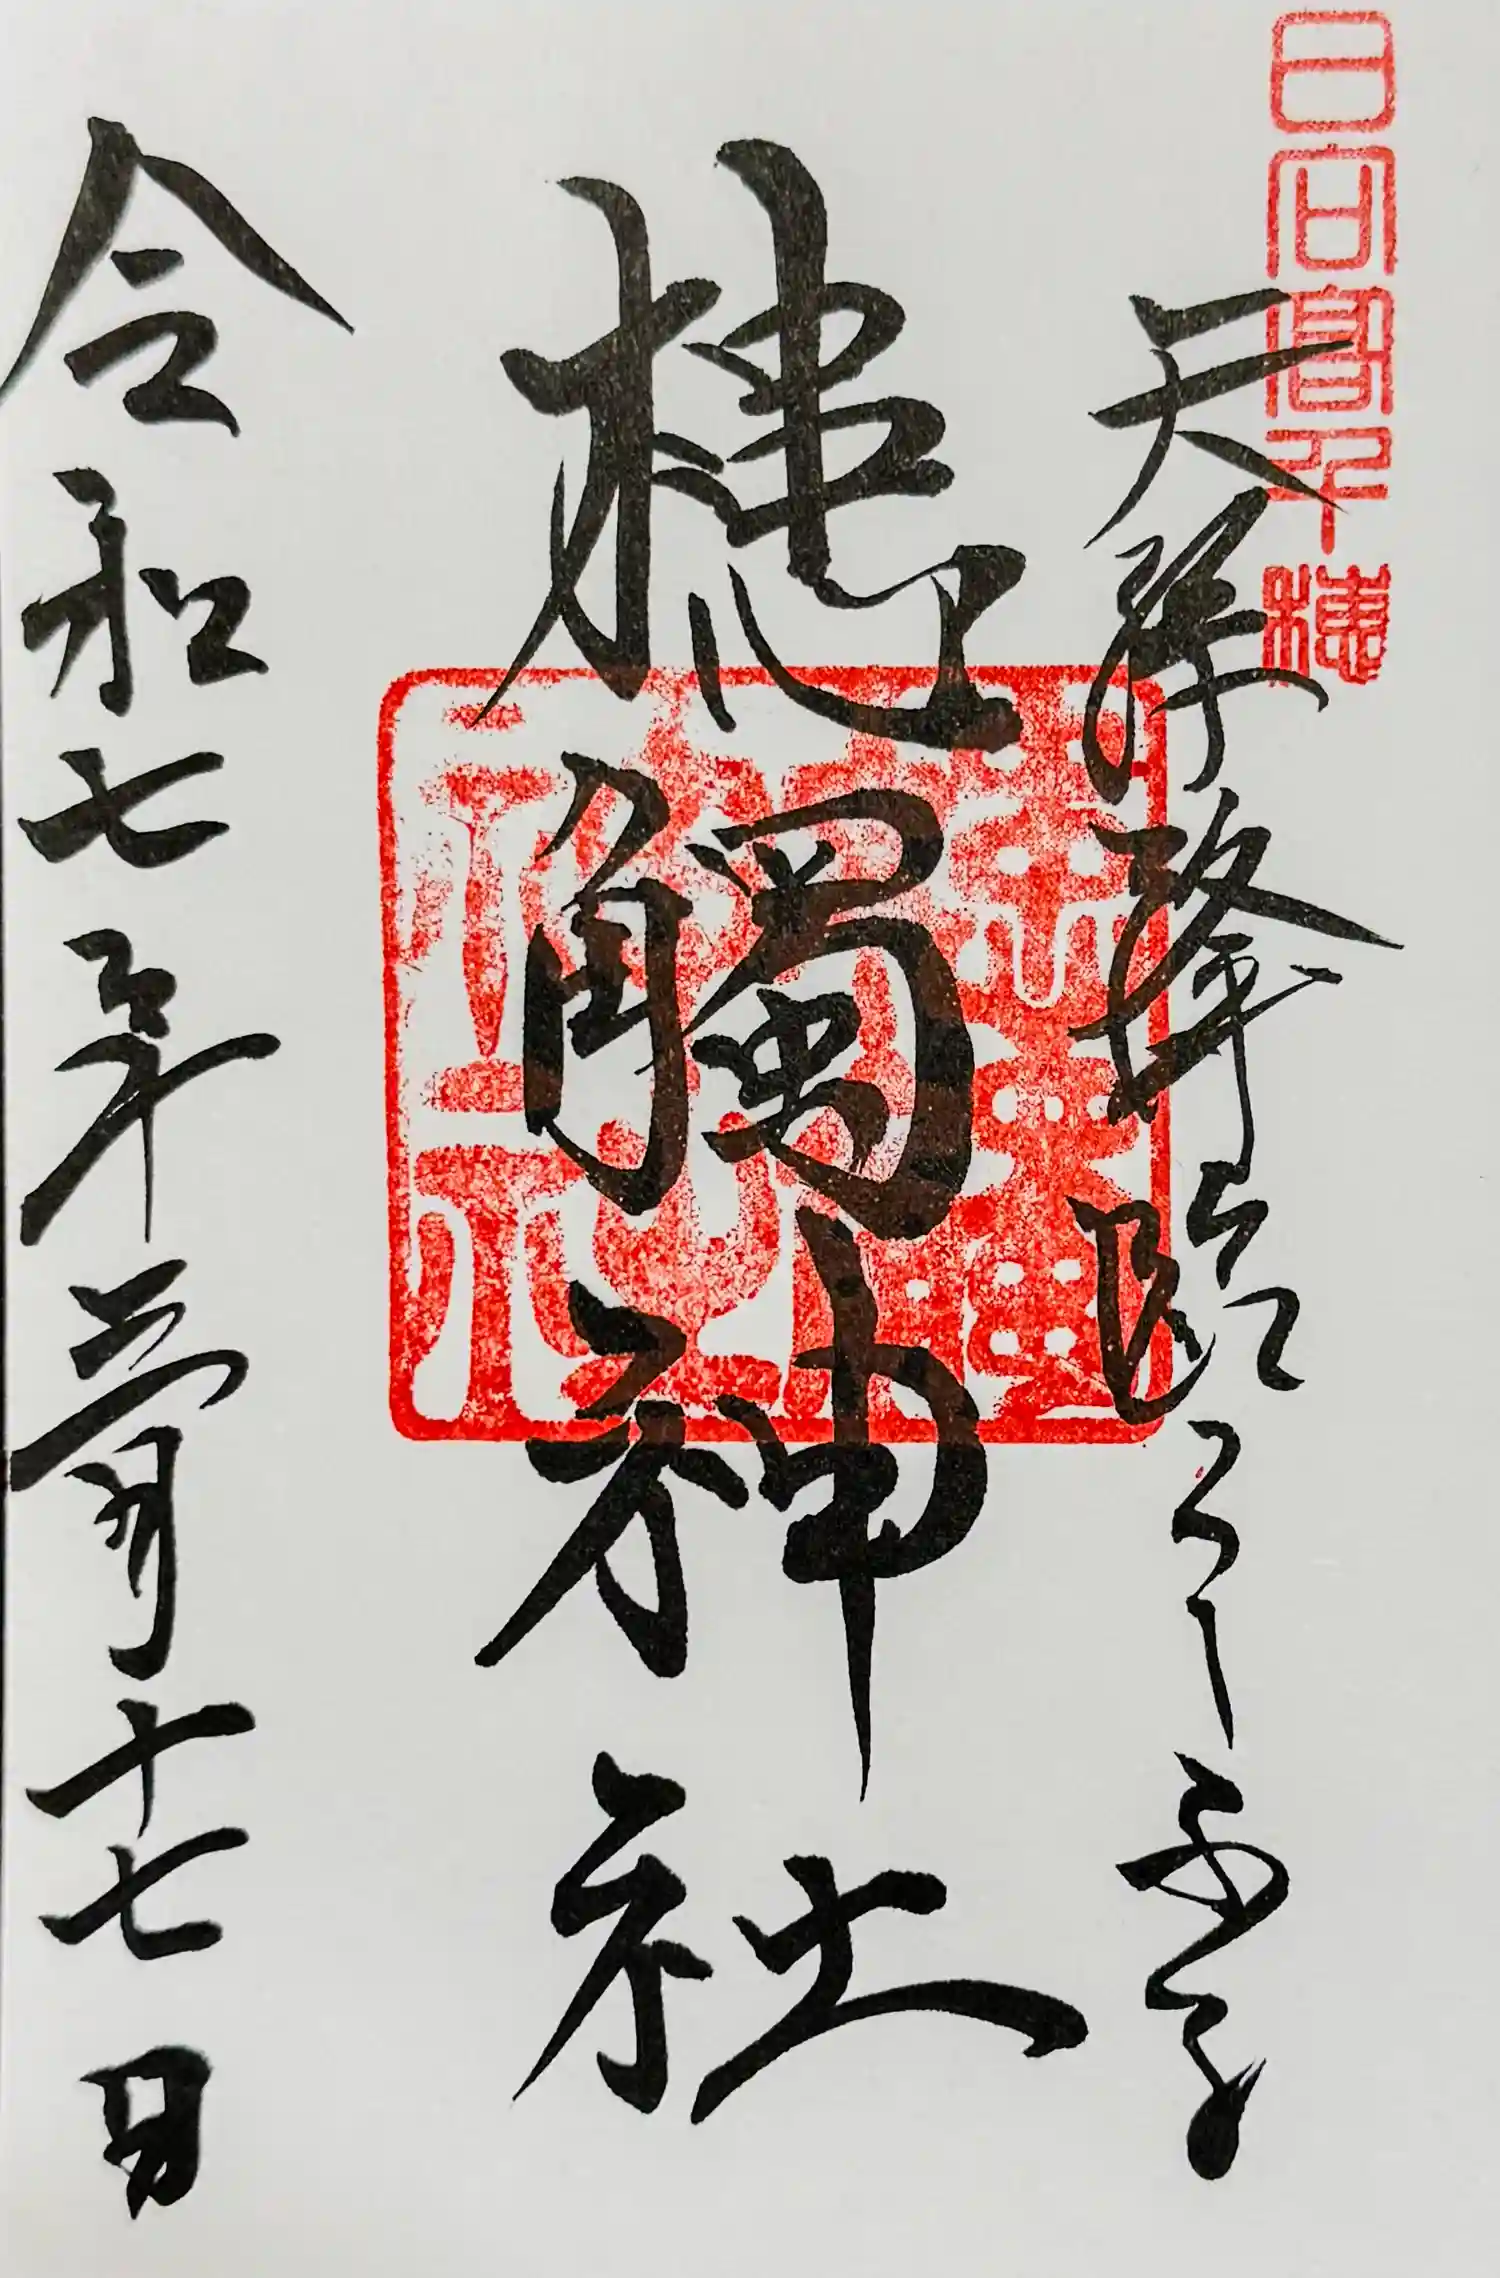 日向高千穂
天孫降臨之
槵觸神社
令和七年二月十七日